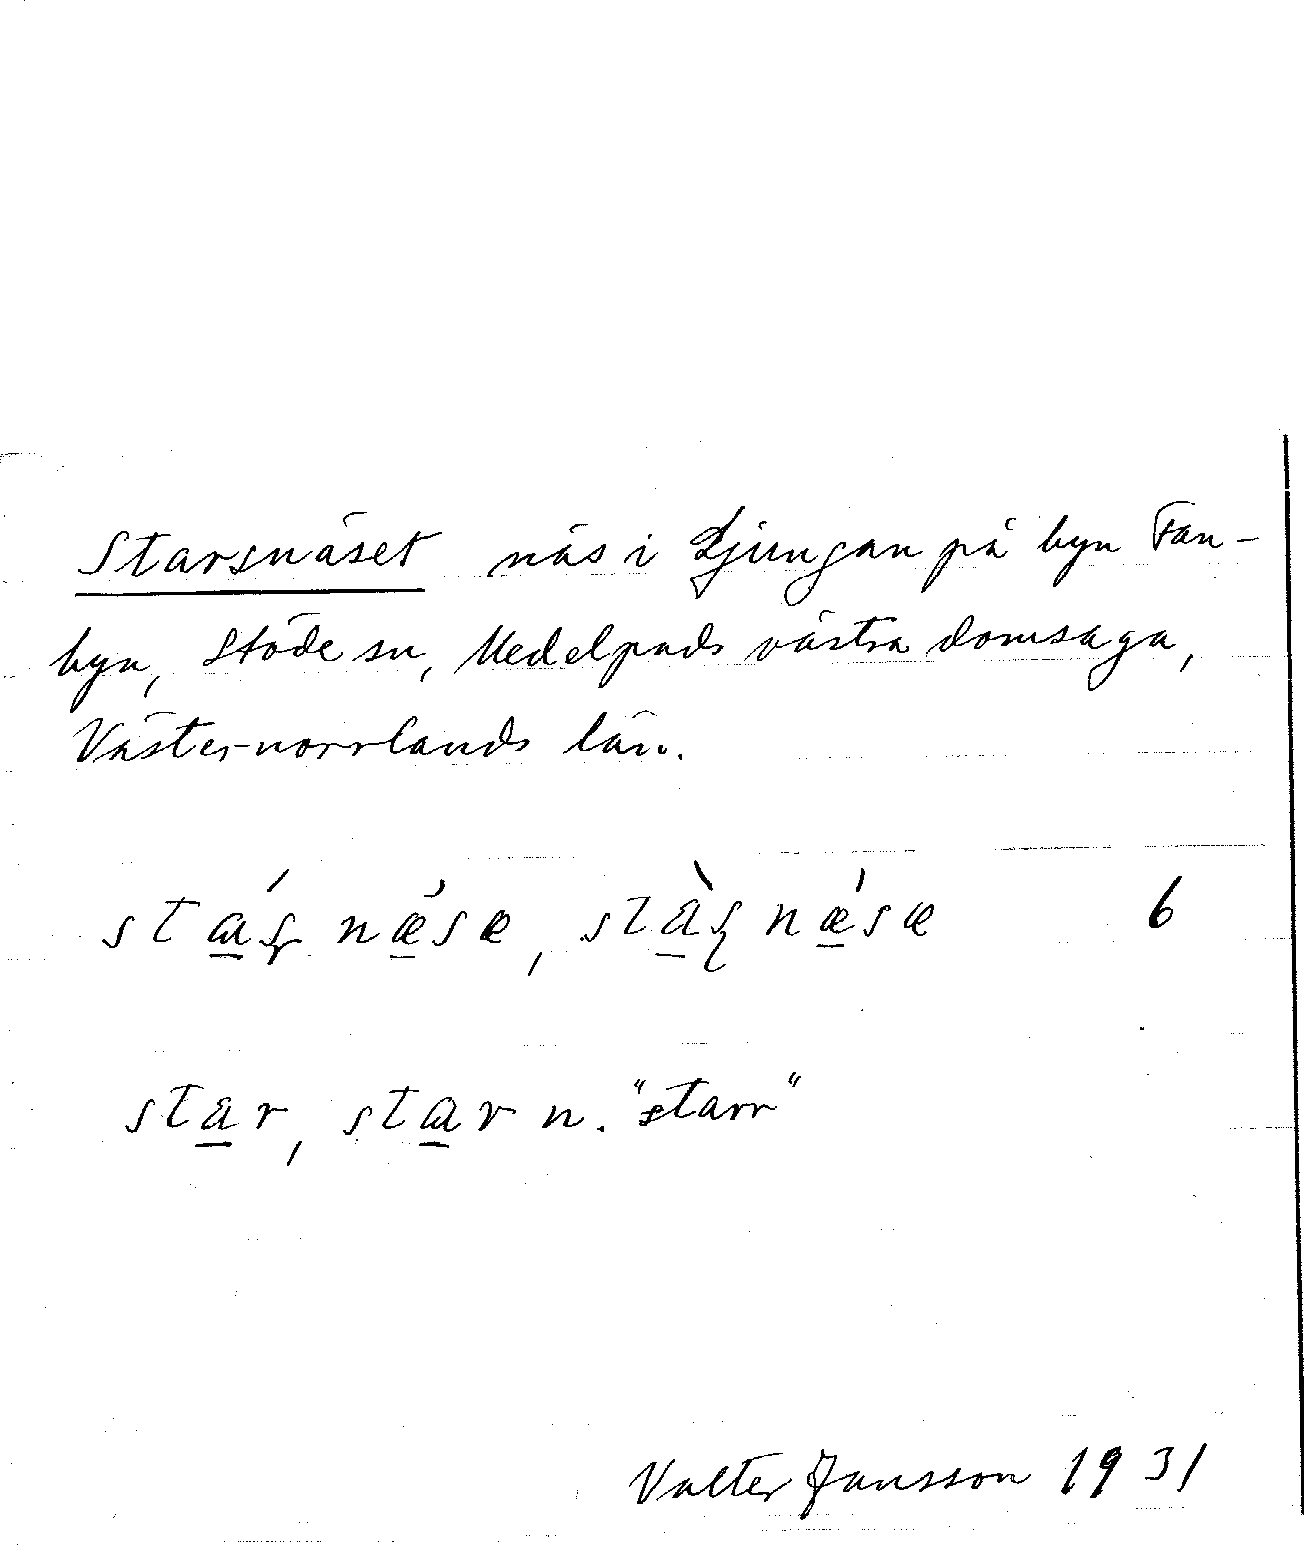 Starsnäset näs i Ljungan på byn Fan-
byn, Stöde sn, Medelpads västra domsaga,
Västernorrlands län.
stáʂ næ̀sæ, stàʂ nǽsæ 6
star, star n. "starr"
Valter Jansson 1931